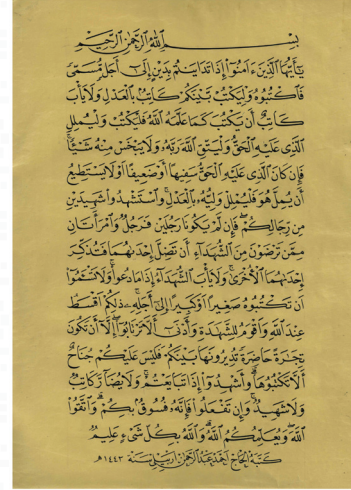 بِسْمِ ٱللَّهِ ٱلرَّحْمَٰنِ ٱلرَّحِيمِ
يَٰٓأَيُّهَا ٱلَّذِينَ ءَامَنُوٓا۟ إِذَا تَدَايَنتُم بِدَيْنٍ إِلَىٰٓ أَجَلٍ مُّسَمًّى
فَٱكْتُبُوهُ وَلْيَكْتُب بَّيْنَكُمْ كَاتِبٌۢ بِٱلْعَدْلِ وَلَا يَأْبَ
كَاتِبٌ أَن يَكْتُبَ كَمَا عَلَّمَهُ ٱللَّهُ فَلْيَكْتُبْ وَلْيُمْلِلِ
ٱلَّذِى عَلَيْهِ ٱلْحَقُّ وَلْيَتَّقِ ٱللَّهَ رَبَّهُۥ وَلَا يَبْخَسْ مِنْهُ شَيْـًٔا
فَإِن كَانَ ٱلَّذِى عَلَيْهِ ٱلْحَقُّ سَفِيهًا أَوْ ضَعِيفًا أَوْ لَا يَسْتَطِيعُ
أَن يُمِلَّ هُوَ فَلْيُمْلِلْ وَلِيُّهُۥ بِٱلْعَدْلِ وَٱسْتَشْهِدُوا۟ شَهِيدَيْنِ
مِن رِّجَالِكُمْ فَإِن لَّمْ يَكُونَا رَجُلَيْنِ فَرَجُلٌ وَٱمْرَأَتَانِ
مِمَّن تَرْضَوْنَ مِنَ ٱلشُّهَدَآءِ أَن تَضِلَّ إِحْدَىٰهُمَا فَتُذَكِّرَ
إِحْدَىٰهُمَا ٱلْأُخْرَىٰ وَلَا يَأْبَ ٱلشُّهَدَآءُ إِذَا مَا دُعُوا۟ وَلَا تَسْـَٔمُوٓا۟
أَن تَكْتُبُوهُ صَغِيرًا أَوْ كَبِيرًا إِلَىٰٓ أَجَلِهِۦ ذَٰلِكُمْ أَقْسَطُ
عِندَ ٱللَّهِ وَأَقْوَمُ لِلشَّهَٰدَةِ وَأَدْنَىٰٓ أَلَّا تَرْتَابُوٓا۟ إِلَّآ أَن تَكُونَ
تِجَٰرَةً حَاضِرَةً تُدِيرُونَهَا بَيْنَكُمْ فَلَيْسَ عَلَيْكُمْ جُنَاحٌ
أَلَّا تَكْتُبُوهَا وَأَشْهِدُوٓا۟ إِذَا تَبَايَعْتُمْ وَلَا يُضَآرَّ كَاتِبٌ
وَلَا شَهِيدٌ وَإِن تَفْعَلُوا۟ فَإِنَّهُۥ فُسُوقٌۢ بِكُمْ وَٱتَّقُوا۟
ٱللَّهَ وَيُعَلِّمُكُمُ ٱللَّهُ وَٱللَّهُ بِكُلِّ شَىْءٍ عَلِيمٌ
كتبه الحاج احمد عبدالرحمن سنة ١٤٤٣هـ